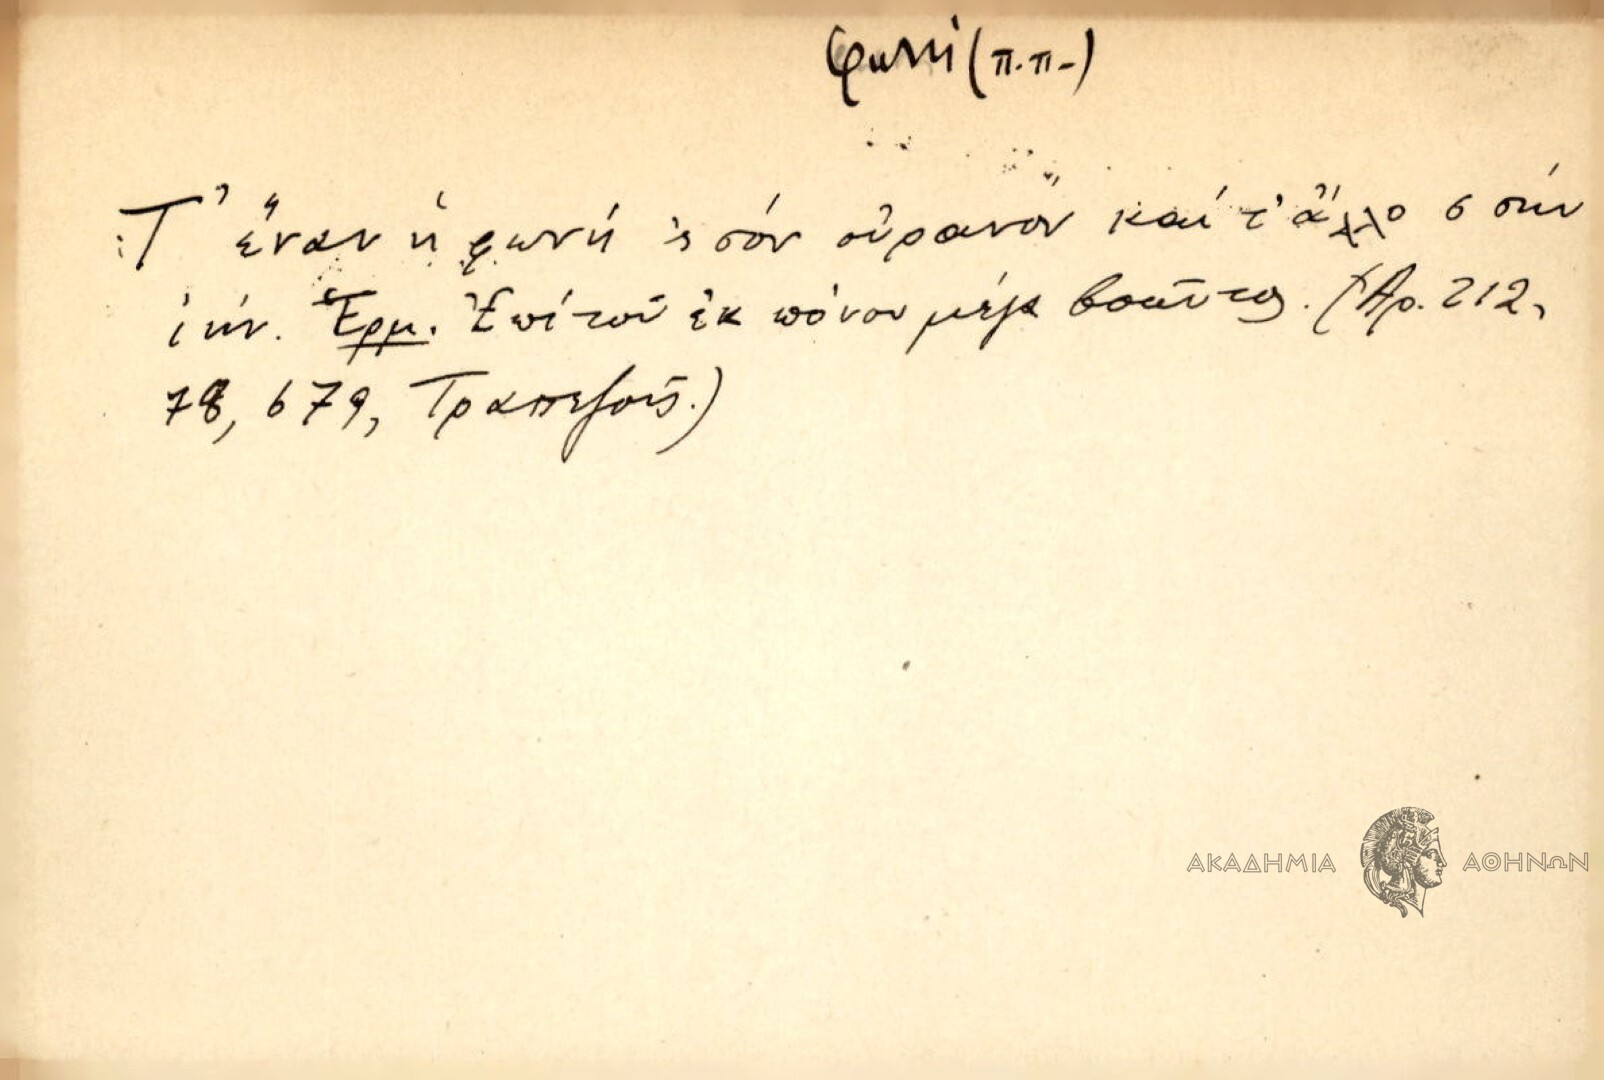 φωνή (π.π.)
Τ' ἕναν ἡ φωνή 'ς σόν οὐρανόν καί τ' ἄλλο σ σήν
ἰήν. Ἑρμ. Ἐπί τοῦ ἐκ πόνου μέγα βοῶντος. (Ἀρ. 212,
78, 679, Τραπεζοῦς.)
ΑΚΑΔΗΜΙΑ ΑΘΗΝΩΝ